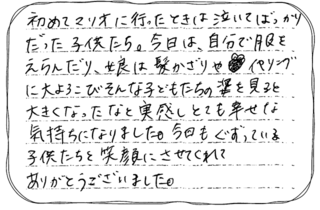 初めてマリオに行ったときは泣いてばっかり
だった子供たち。今日は、自分で服を
えらんだり、娘は髪かざりや イヤリング
に大よろこびそんな子どもたちの姿を見ると
大きくなったなと実感しとても幸せな
気持ちになりました。今日もぐずっている
子供たちを笑顔にさせてくれて
ありがとうございました。